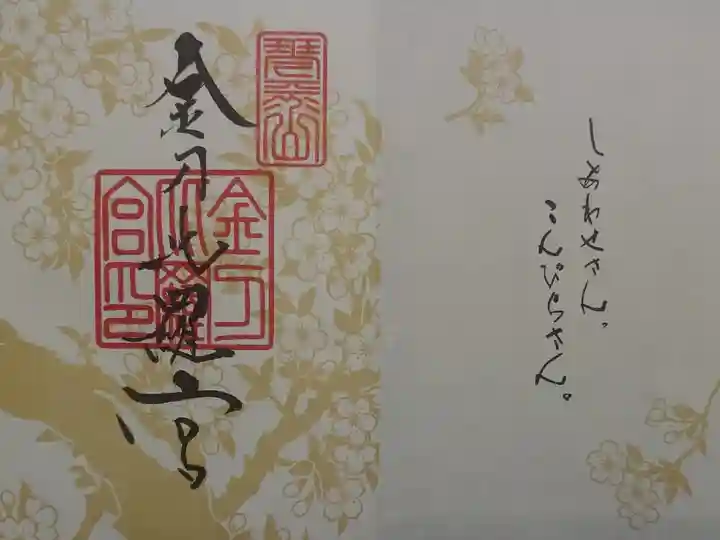 しあわせさん。
こんぴらさん。
琴平山
金刀比羅宮
金刀
比羅
宮印